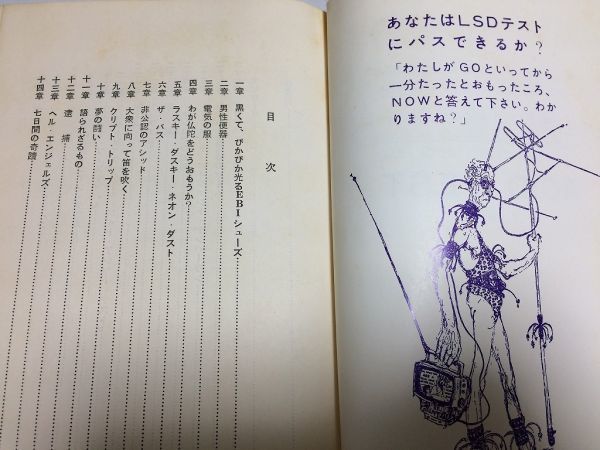 あなたはLSDテスト
にパスできるか?
「わたしがGOといってから
一分たったとおもったころ、
NOWと答えて下さい。わか
りますね?」
目次
一章 黒くて、ぴかぴか光るEBIシューズ
二章 男性便器
三章 電気の服
四章 わが仏陀をどうおもうか?
五章 ラスキー・ダスキー・ネオン・ダスト
六章 ザ・バス
七章 非公認のアシッド
八章 大衆に向って笛を吹く
九章 クリプト・トリップ
十章 夢の闘い
十一章 語られざるもの
十二章 逮捕
十三章 ヘル・エンジェルズ
十四章 七日間の奇蹟